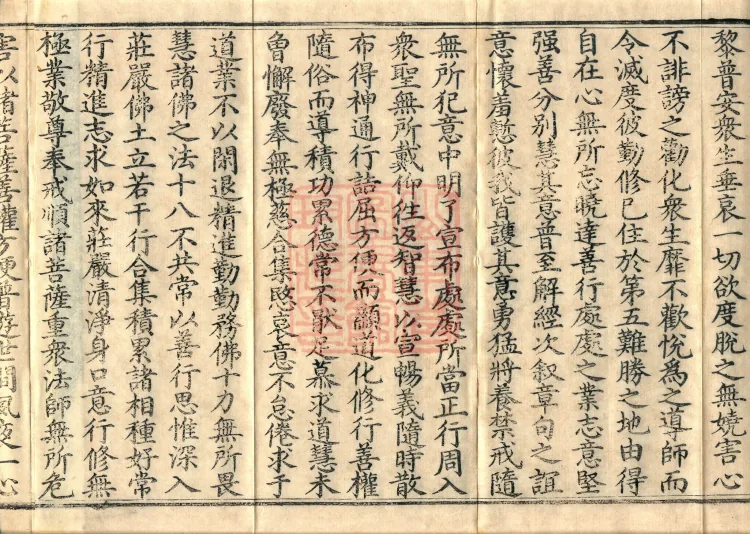 黎普安衆生垂哀一切欲度脫之無嬈害心
不誹謗之勸化衆生靡不歡悅爲之導師而
令滅度彼勤修已住於第五難勝之地由得
自在心無所忘曉達善行處處之業志意堅
强善分別慧其意普至解經次叙章句之誼
意懷羞慙彼我皆護其意勇猛將養禁戒隨
無所犯意中明了宣布處處所當正行周入
衆聖無所戴仰往返智慧以宣暢義隨時散
布得神通行詰屈方便而顯道化修行善權
隨俗而導積功累德常不猒足慕求道慧未
曾懈廢奉無極慈合集愍哀意不怠倦求于
道業不以閑退精進勤勤務佛十力無所畏
慧諸佛之法十八不共常以善行思惟深入
莊嚴佛土立若干行合集積累諸相種好常
行精進志求如來莊嚴清淨身口意行修無
極業敬尊奉戒順諸菩薩重衆法師無所危
害以諸菩薩善權方便普游世間夙夜一心